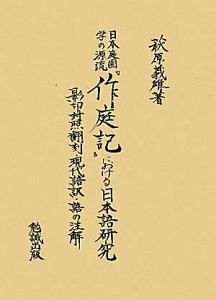 萩原義雄著
日本庭園学の源流
『作庭記』における日本語研究
影印対照翻刻・現代語訳・語の注解
勉誠出版